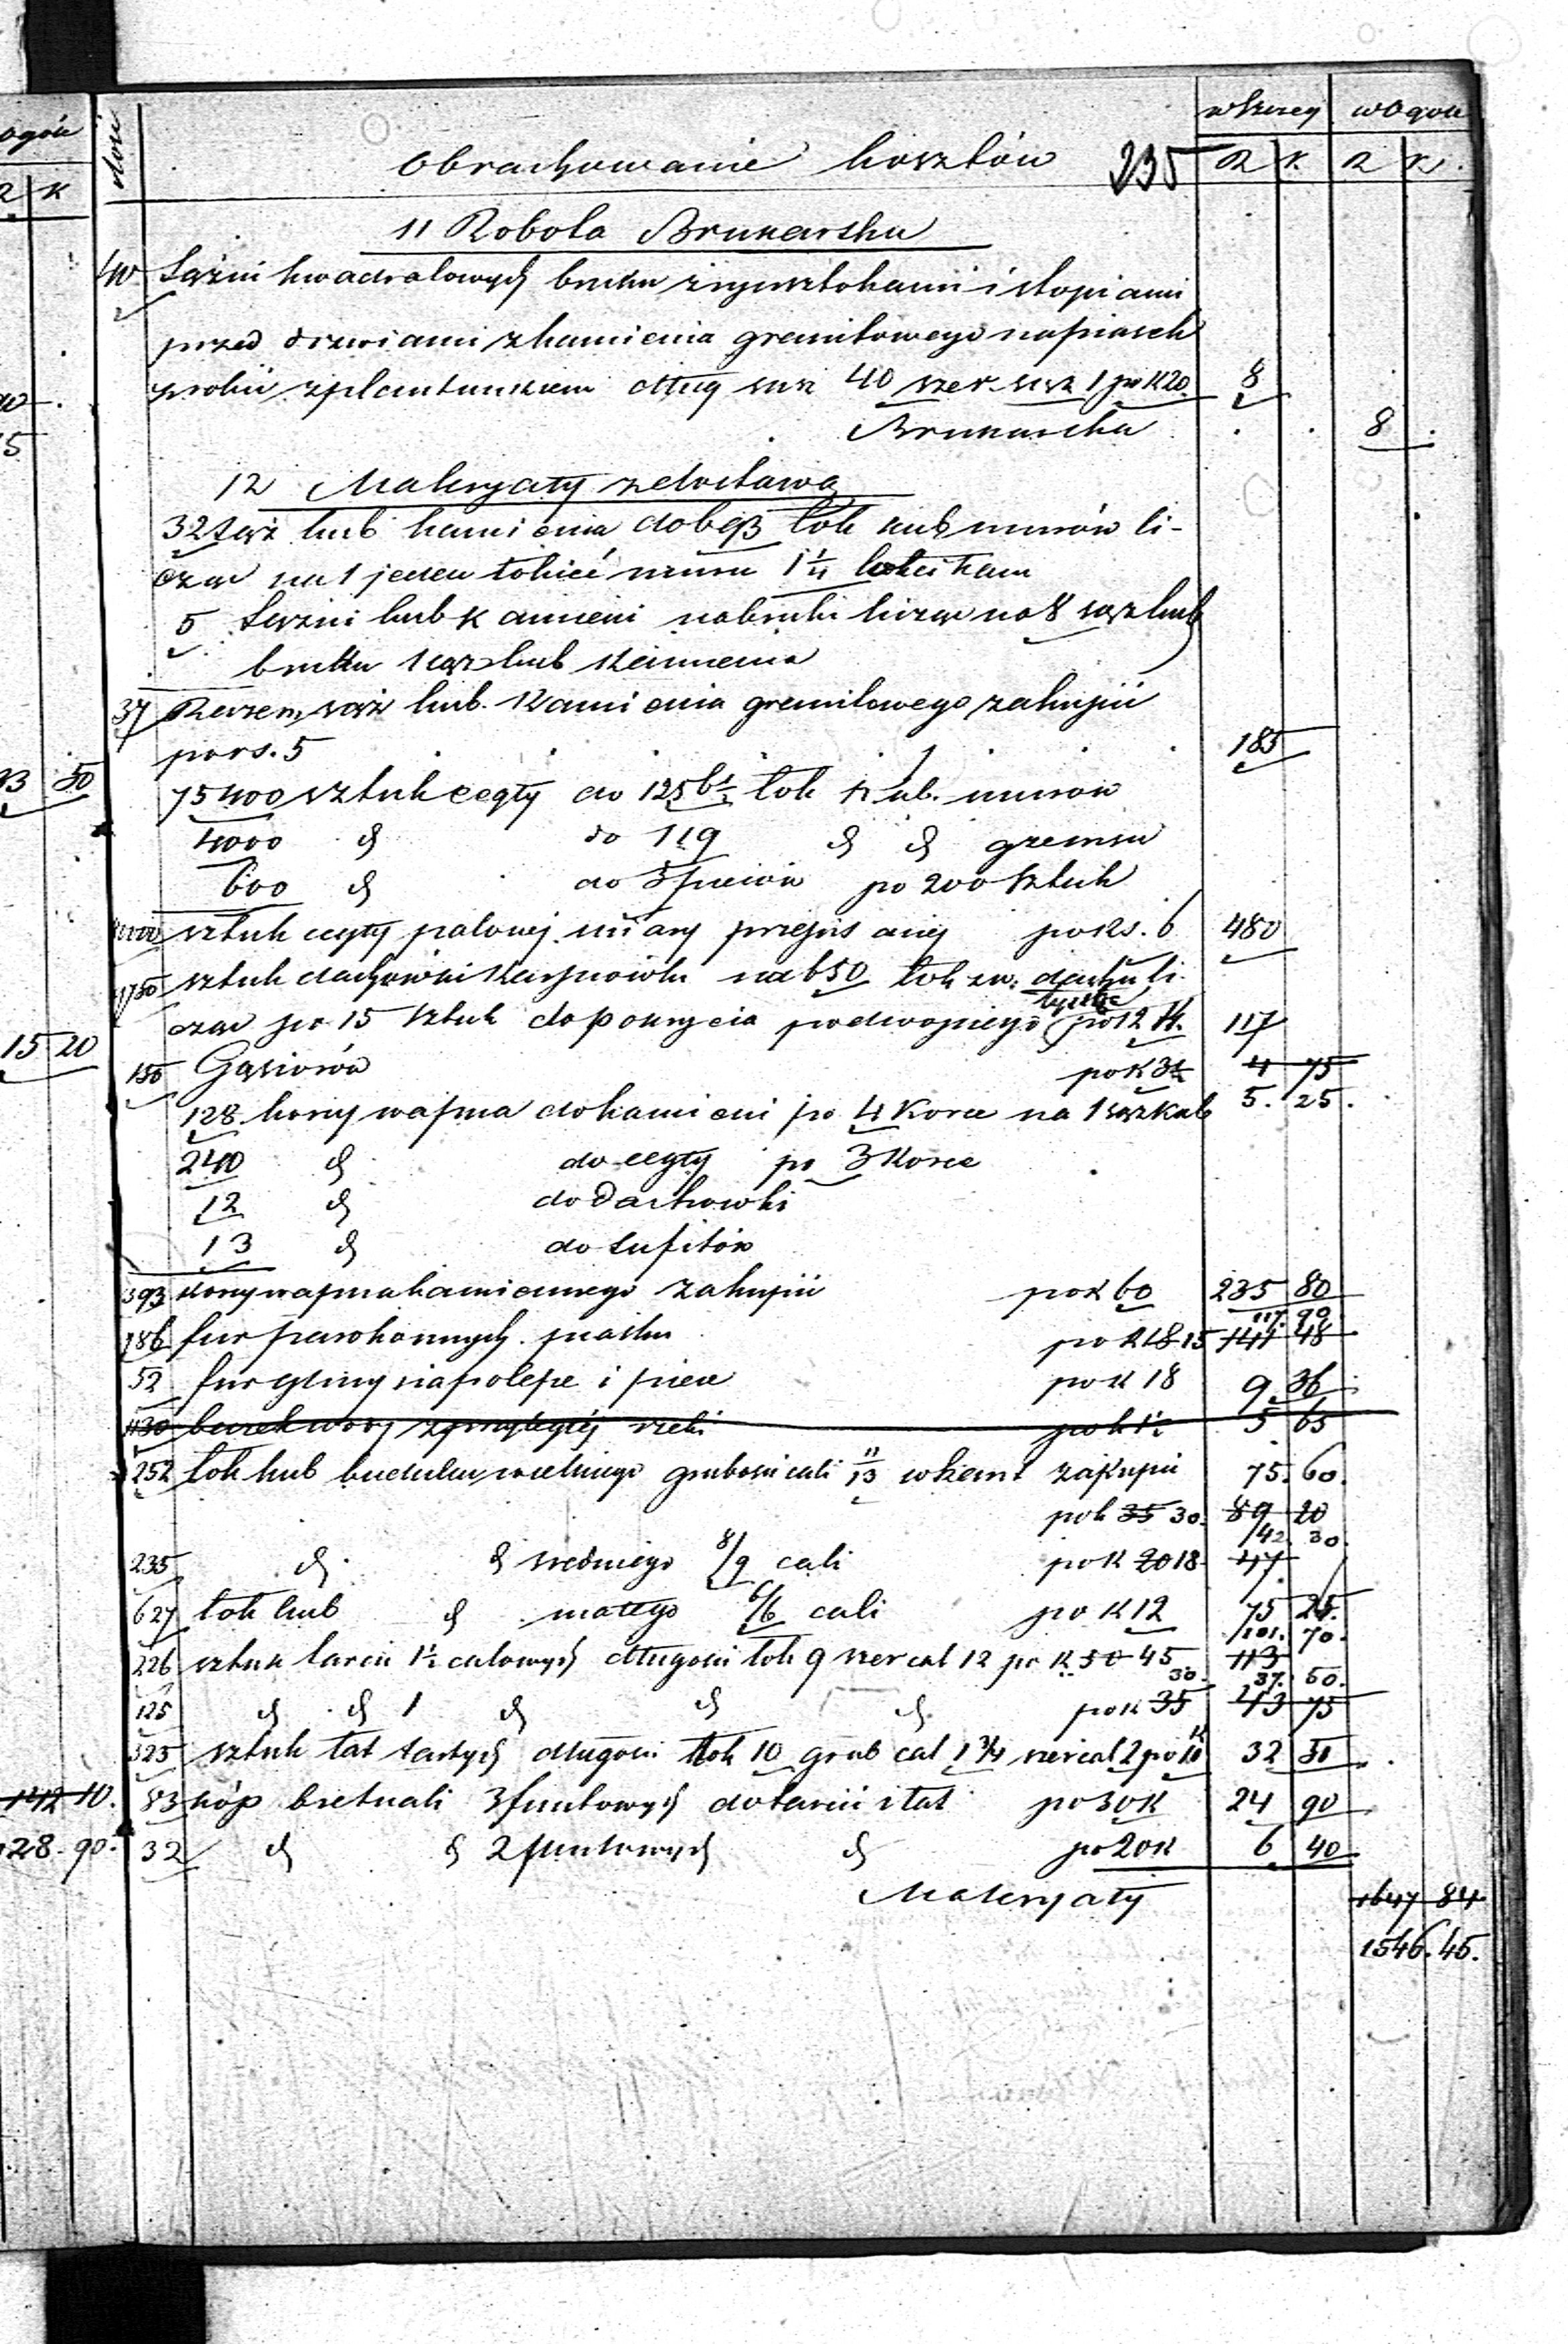 ogóle
R K
40
5
93 50
15 20
142 10.
128. 90.
ilość
Obrachowanie kosztów 235
w szczeg w Ogóle
R K. R K.
11 Robota Brukarska
40 Sążni kwadratowych bruku z rynsztokami i stopiami
przed drzwiami z kamienia granitowego na piasek
zrobić z plantunkiem dług sąż 40 szer. sąż 1 po K 20. 8
Brukarska 8
12 Materyały z dostawą
32 sąż kub kamienia do łok kub murów li-
cząc na 1 jeden łokieć muru 1 1/4 łokci kam
5 Sążni kub kamieni na bruki licząc na 8 sąż kub
bruku 1 sąż kub kamienia
37 Razem sąż kub. Kamienia granitowego zakupić
po rs. 5 185
75400 sztuk cegły do łok kub. murów
4000 d do 119 d d gzemsu
600 d do 3 pieców po 200 sztuk
80000 sztuk cegły palonej miary przepisanej po Rs. 6 480
9750 sztuk dachówki Karpiówki na 650 łok kw. dachu li-
cząc po 15 sztuk do pokrycia podwójnego po 12 117
tysiąc
150 Gąsiorów po K 3½ 4 75
128 korcy wapna do kamieni po 4 Korce na 1 sąż kub 5. 25.
240 d do cegły po 3 Korce
12 d do Dachówki
13 d do Sufitów
393 korcy wapna kamiennego zakupić po K 60 235 80
786 fur parokonnych piasku po K 18 15 141 48
117. 90
52 fur gliny na polepę i piece po K 18 9 36
1130 beczek wody z przyległej rzeki po K ½ 5 65
252 łok kub budulcu wielkiego grubości cali 11/13 w kant zakupić 75. 60.
po k 35 30. 89 20
235 d. d średniego 8/9 cali po K 20 18. 47
42. 30.
627 łok kub d małego 6/6 cali po K 12 75 24.
226 sztuk tarcic 1½ calowych długości łok 9 szer cal 12 po K 50 45 113
101. 70.
125 d d 1 d d d. po K 35 43 75
30. 37. 50.
325 sztuk łat tartych długości łok 10 grub cal 1 3/4 szer cal 2 po K 10 32 50
83 kóp bretnali 3 funtowych do tarcic i łat po 30 K 24 90
32 d d 2 funtowych d po 20 K 6 40
Materyały 1647 84
1546. 45.